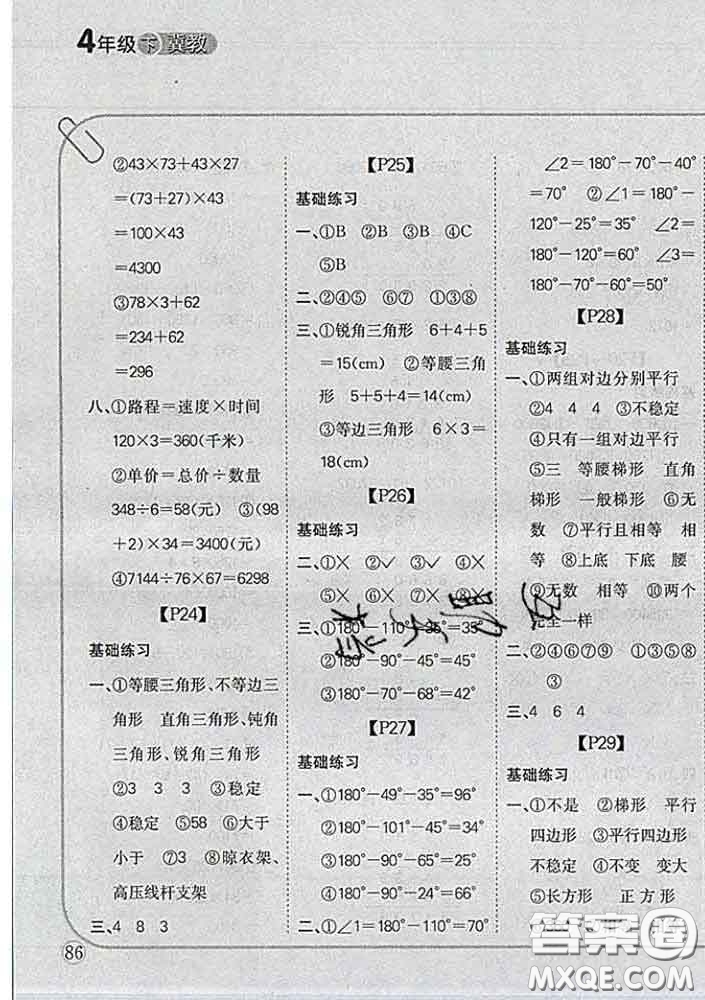 4年级 下 冀教
②43×73+43×27
=(73+27)×43
=100×43
=4300
③78×3+62
=234+62
=296
八、①路程=速度×时间
120×3=360(千米)
②单价=总价÷数量
348÷6=58(元) ③(98
+2)×34=3400(元)
④7144÷76×67=6298
【P24】
基础练习
一、①等腰三角形、不等边三
角形 直角三角形、钝角
三角形、锐角三角形
②3 3 3 ③稳定
④稳定 ⑤58 ⑥大于
小于 ⑦3 ⑧晾衣架、
高压线杆支架
三、4 8 3
86
【P25】
基础练习
一、①B ②B ③B ④C
⑤B
二、②④⑤ ⑥⑦ ①③⑧
三、①锐角三角形 6+4+5
=15(cm) ②等腰三角
形 5+5+4=14(cm)
③等边三角形 6×3=
18(cm)
【P26】
基础练习
二、①× ②✓ ③✓ ④×
⑤× ⑥× ⑦× ⑧×
三、①180°-110°-35°=35°
②180°-90°-45°=45°
③180°-70°-68°=42°
【P27】
基础练习
一、①180°-49°-35°=96°
②180°-101°-45°=34°
③180°-90°-45°=45°
④180°-90°-24°=66°
二、①∠1=180°-110°=70°
∠2=180°-70°-40°
=70° ②∠1=180°-
120°-25°=35° ∠2=
180°-120°=60° ∠3=
180°-70°-60°=50°
【P28】
基础练习
一、①两组对边分别平行
②4 4 4 ③不稳定
④只有一组对边平行
⑤三 等腰梯形 直角
梯形 一般梯形 ⑥无
数 ⑦平行且相等 相
等 ⑧上底 下底 腰
⑨无数 相等 ⑩两个
完全一样
二、②④⑥⑦⑨ ①③⑤⑧
③
三、4 6 4
【P29】
基础练习
一、①不是 ②梯形 平行
四边形 ③平行四边形
不稳定 ④不变 变大
⑤长方形 正方形
答案圈
MXQE.COM